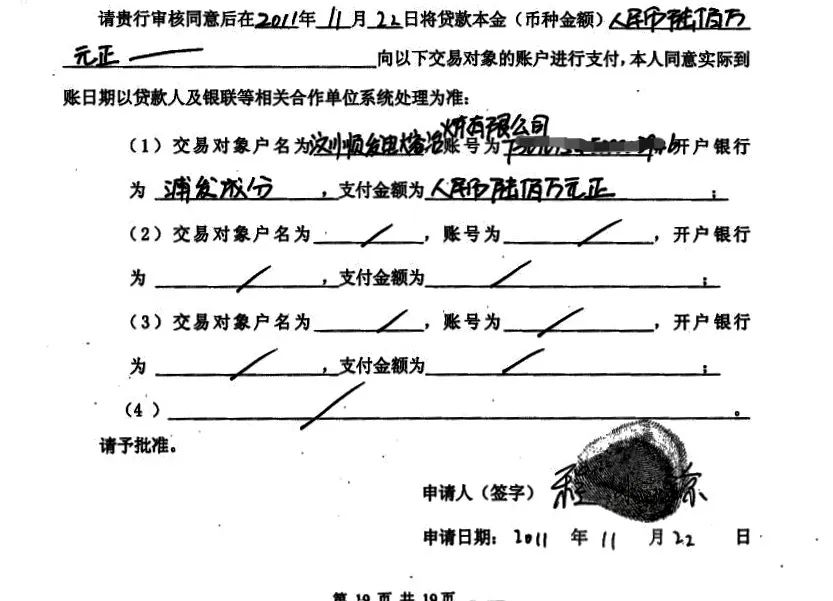 请贵行审核同意后在2011年11月22日将贷款本金（币种金额）人民币陆佰万
元正 向以下交易对象的账户进行支付，本人同意实际到
账日期以贷款人及银联等相关合作单位系统处理为准：
（1）交易对象户名为 有限公司 账号为 开户银行
为 浦发 ，支付金额为人民币陆佰万元正；
（2）交易对象户名为 ，账号为 ，开户银行
为 ，支付金额为 ；
（3）交易对象户名为 ，账号为 ，开户银行
为 ，支付金额为 ；
（4） 。
请予批准。
申请人（签字）
申请日期：2011 年 11 月 22 日
第 19 页 共 19 页